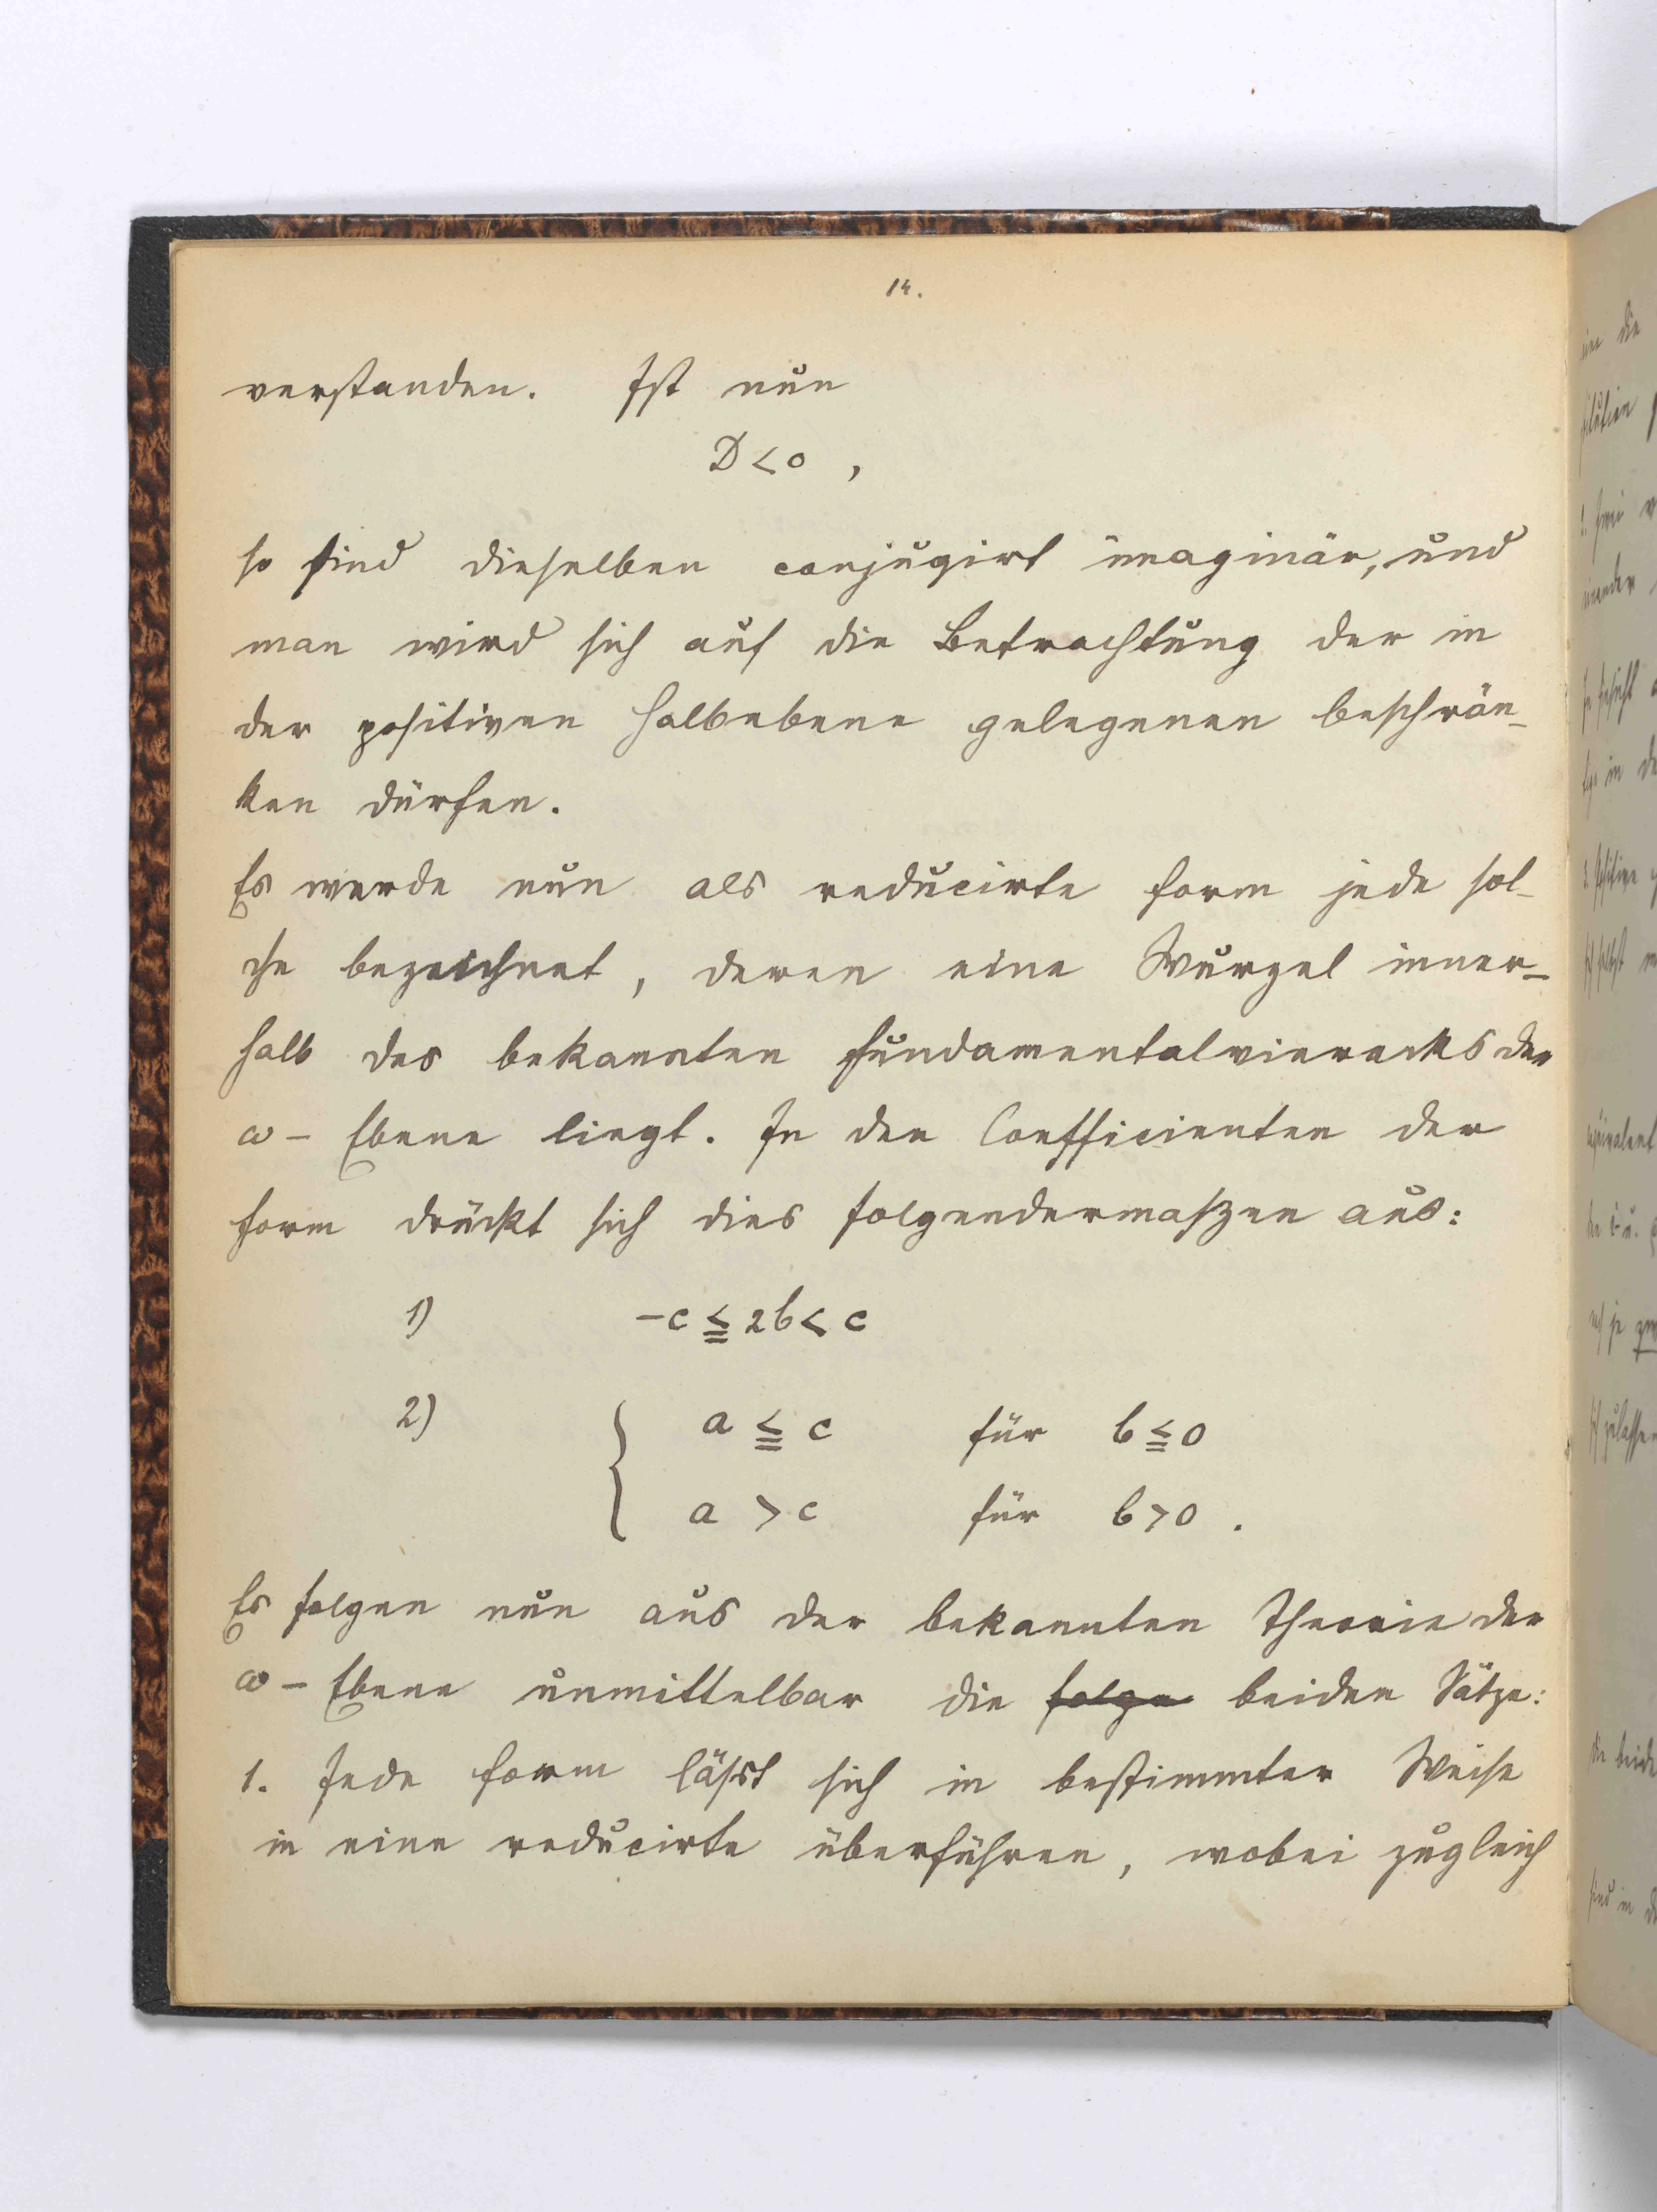 14.
verstanden. Ist nun
D < 0 ,
so sind dieselben conjugirt imaginär, und
man wird sich auf die Betrachtung der in
der positiven Halbebene gelegenen beschrän-
ken dürfen.
Es werde nun als reducirte Form jede sol-
che bezeichnet, deren eine Wurzel inner-
halb des bekannten Fundamentalvierecks der
ω – Ebene liegt. In den Coefficienten der
Form drückt sich dies folgendermaßen aus:
1) –c ≦ 2b < c
2) { a ≦ c für b ≦ 0
a > c für b > 0 .
Es folgen nun aus der bekannten Theorie der
ω – Ebene unmittelbar die folge beiden Sätze:
1. Jede Form läßst sich in bestimmter Weise
in eine reducirte überführen, wobei zugleich